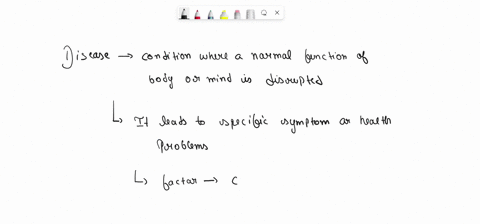 Disease → condition where a normal function of
body or mind is disrupted
↳ It leads to specific symptom or health
Problems
↳ factor → C